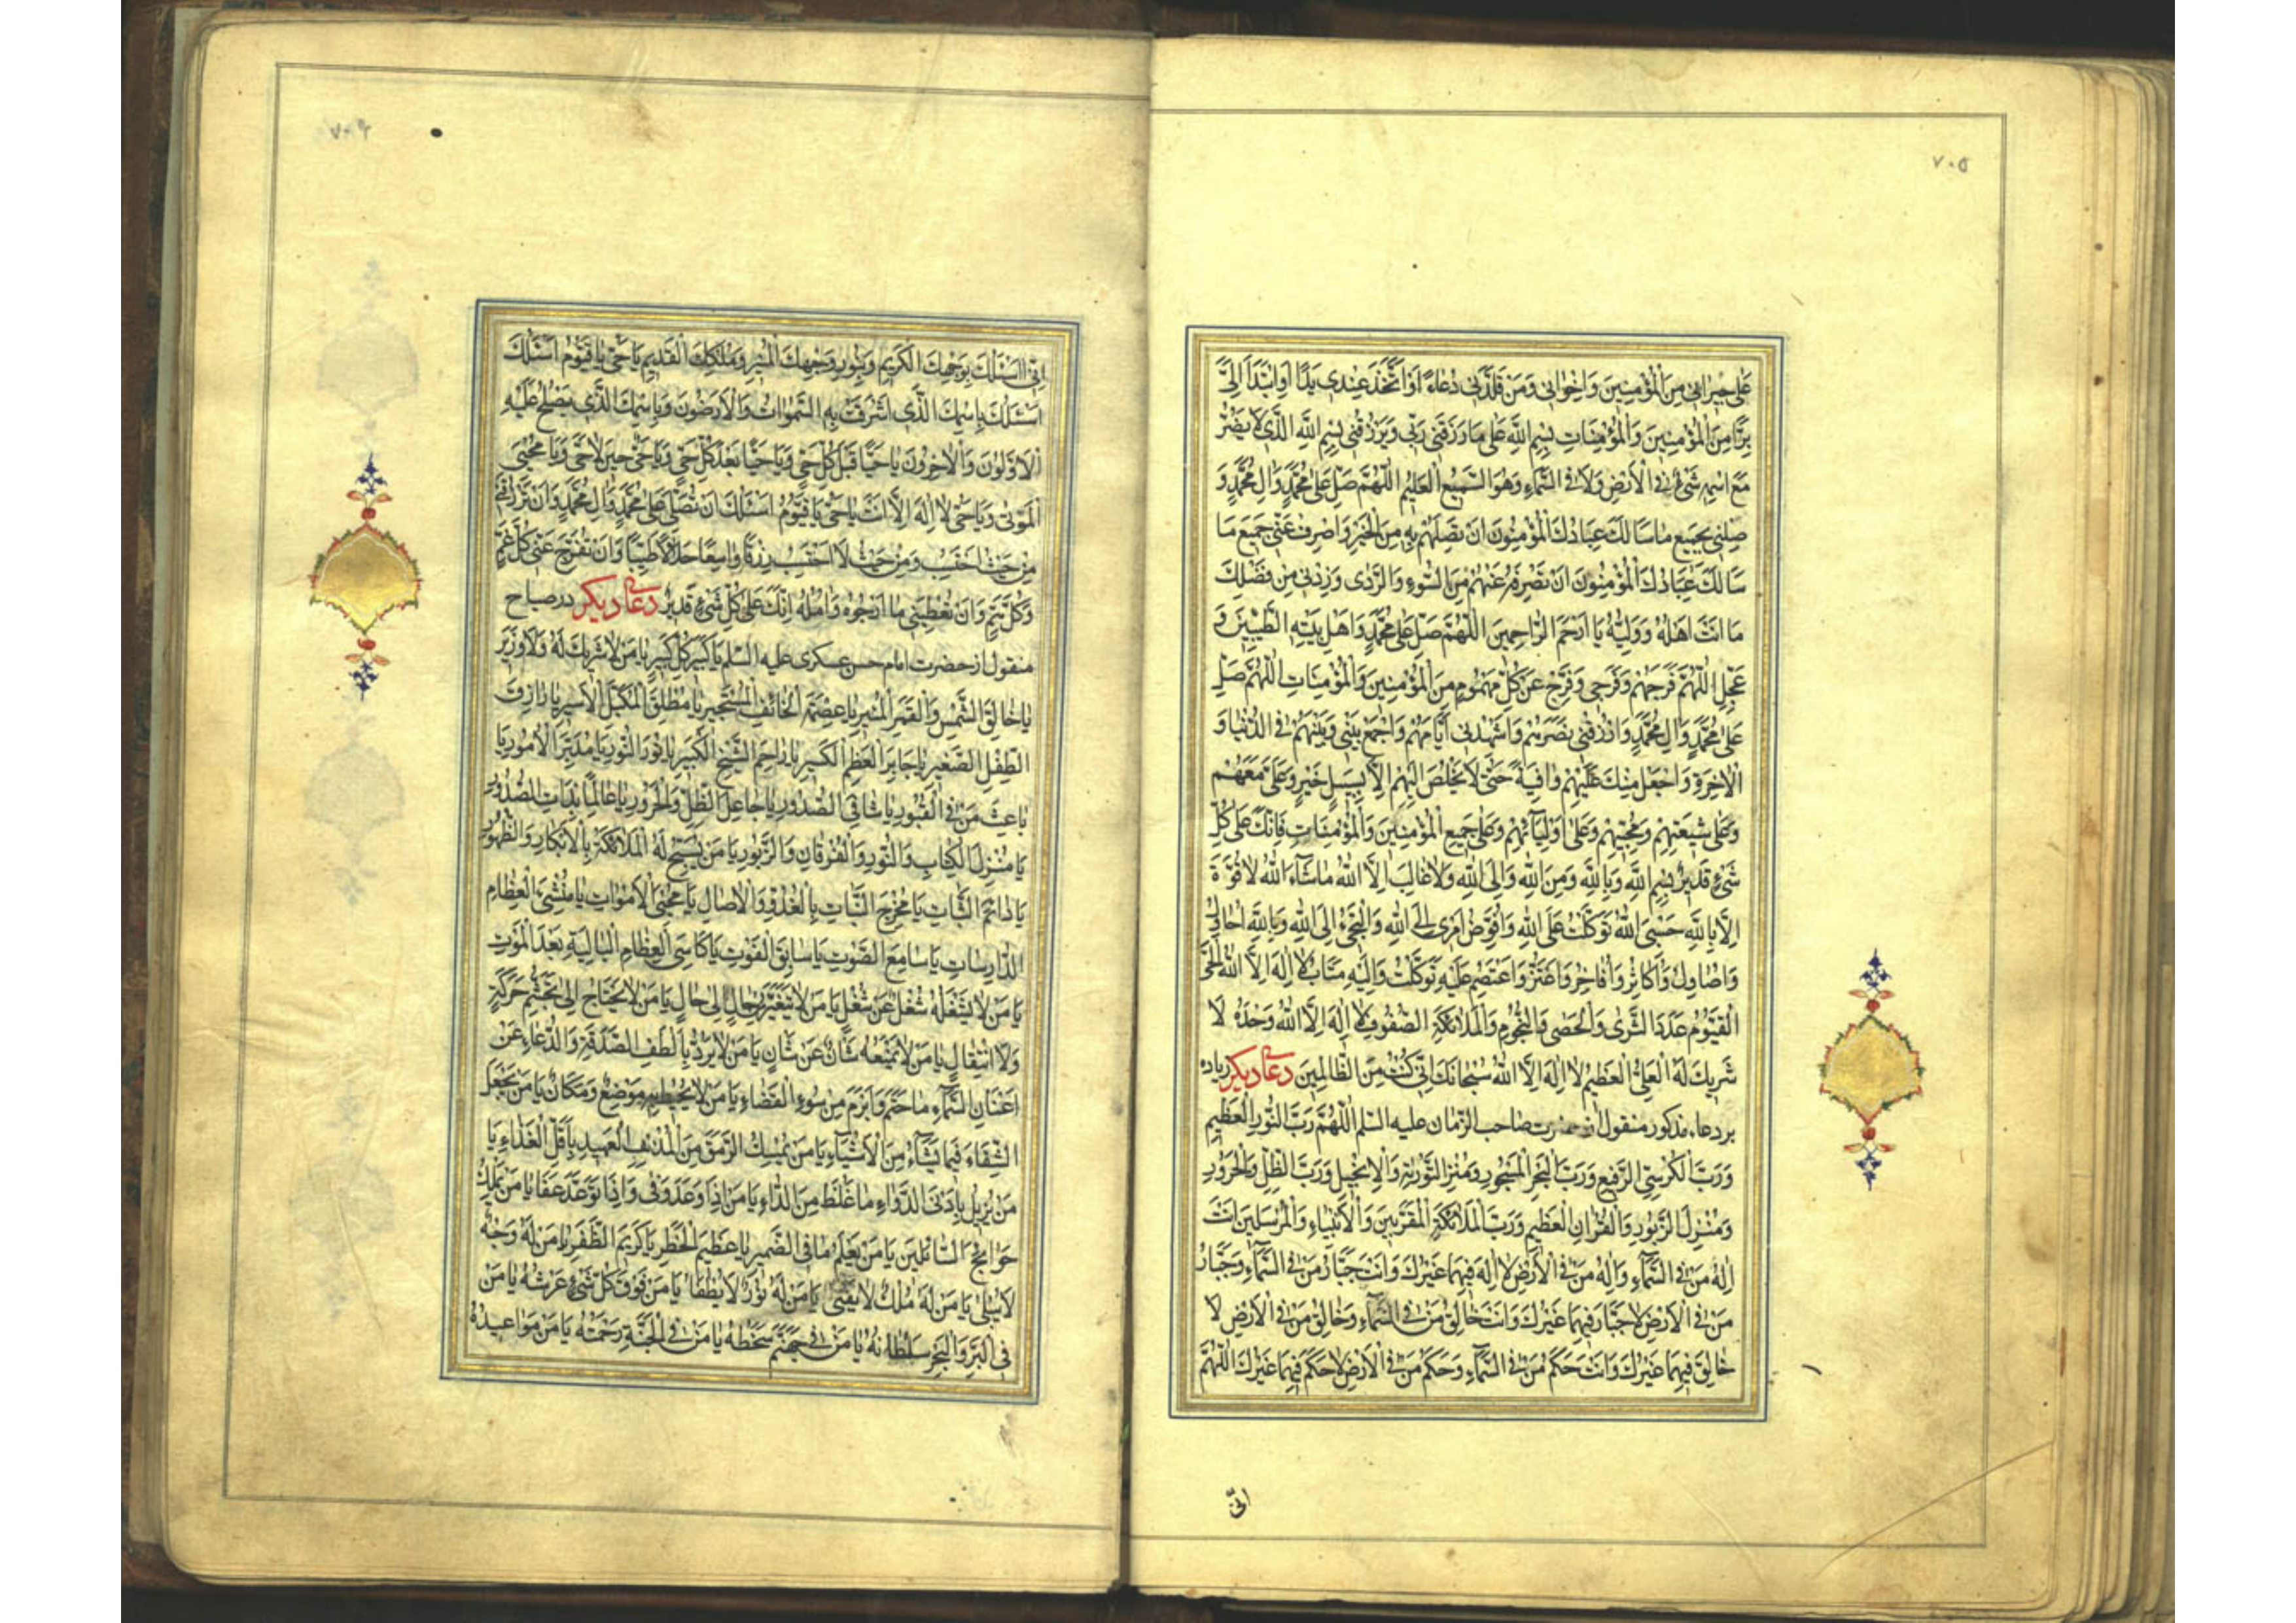 ٧٠٥
عَلى جيرانى مِنَ الْمُؤْمِنينَ وَاِخْوانى وَمَنْ قَلَّدَنى دُعاءً اَوِ اتَّخَذَ عِنْدى يَدًا اَوِ ابْتَدَأَ اِلَىَّ
بِرًّا مِنَ الْمُؤْمِنينَ وَالْمُؤْمِناتِ بِسْمِ اللهِ عَلى ما رَزَقَنى رَبّى وَيَرْزُقُنى بِسْمِ اللهِ الَّذى لا يَضُرُّ
مَعَ اسْمِهِ شَىْءٌ فِى الْاَرْضِ وَلا فِى السَّماءِ وَهُوَ السَّميعُ الْعَليمُ اَللّهُمَّ صَلِّ عَلى مُحَمَّدٍ وَالِ مُحَمَّدٍ وَ
صِلْنى بِجَميعِ ما سَاَلَكَ عِبادُكَ الْمُؤْمِنُونَ اَنْ تَصِلَهُمْ بِهِ مِنَ الْخَيْرِ وَاصْرِفْ عَنّى جَميعَ ما
سَاَلَكَ عِبادُكَ الْمُؤْمِنُونَ اَنْ تَصْرِفَهُ عَنْهُمْ مِنَ السُّوءِ وَالرَّدى وَزِدْنى مِنْ فَضْلِكَ
ما اَنْتَ اَهْلُهُ وَوَلِيُّهُ يا اَرْحَمَ الرّاحِمينَ اَللّهُمَّ صَلِّ عَلى مُحَمَّدٍ وَاَهْلِ بَيْتِهِ الطَّيِّبينَ وَ
عَجِّلِ اللّهُمَّ فَرَجَهُمْ وَفَرَجى وَفَرِّجْ عَنْ كُلِّ مَهْمُومٍ مِنَ الْمُؤْمِنينَ وَالْمُؤْمِناتِ اَللّهُمَّ صَلِّ
عَلى مُحَمَّدٍ وَالِ مُحَمَّدٍ وَارْزُقْنى نَصْرَهُمْ وَاَشْهِدْنى اَيّامَهُمْ وَاجْمَعْ بَيْنى وَبَيْنَهُمْ فِى الدُّنْيا وَ
الْاخِرَةِ وَاجْعَلْ مِنْكَ عَلَيْهِمْ واقِيَةً حَتّى لا يَخْلُصَ اِلَيْهِمْ اِلّا بِسَبيلِ خَيْرٍ وَعَلَىَّ مَعَهُمْ
وَعَلى شيعَتِهِمْ وَمُحِبّيهِمْ وَعَلى اَوْلِيائِهِمْ وَعَلى جَميعِ الْمُؤْمِنينَ وَالْمُؤْمِناتِ فَاِنَّكَ عَلى كُلِّ
شَىْءٍ قَديرٌ بِسْمِ اللهِ وَبِاللهِ وَمِنَ اللهِ وَاِلَى اللهِ وَلا غالِبَ اِلَّا اللهُ ماشاءَ اللهُ لا قُوَّةَ
اِلّا بِاللهِ حَسْبِىَ اللهُ تَوَكَّلْتُ عَلَى اللهِ وَاُفَوِّضُ اَمْرى اِلَى اللهِ وَاَلْتَجِئُ اِلَى اللهِ وَبِاللهِ اُحاوِلُ
وَاُصاوِلُ وَاُكاثِرُ وَاُفاخِرُ وَاَعْتَزُّ وَاَعْتَصِمُ عَلَيْهِ تَوَكَّلْتُ وَاِلَيْهِ مَتابِ لا اِلهَ اِلَّا اللهُ الْحَىُّ
الْقَيُّومُ عَدَدَ الثَّرى وَالْحَصى وَالنُّجُومِ وَالْمَلائِكَةِ الصُّفُوفِ لا اِلهَ اِلَّا اللهُ وَحْدَهُ لا
شَريكَ لَهُ الْعَلِىُّ الْعَظيمُ لا اِلهَ اِلَّا اللهُ سُبْحانَكَ اِنّى كُنْتُ مِنَ الظّالِمينَ دعاى ديكر زياده
بر دعاء مذكور منقول از حضرت صاحب الزمان عليه السلم اَللّهُمَّ رَبَّ النُّورِ الْعَظيمِ
وَرَبَّ الْكُرْسِىِّ الرَّفيعِ وَرَبَّ الْبَحْرِ الْمَسْجُورِ وَمُنْزِلَ التَّوْريةِ وَالْاِنْجيلِ وَرَبَّ الظِّلِّ وَالْحَرُورِ
وَمُنْزِلَ الزَّبُورِ وَالْقُرْانِ الْعَظيمِ وَرَبَّ الْمَلائِكَةِ الْمُقَرَّبينَ وَالْاَنْبِياءِ وَالْمُرْسَلينَ اَنْتَ
اِلهُ مَنْ فِى السَّماءِ وَاِلهُ مَنْ فِى الْاَرْضِ لا اِلهَ فيهِما غَيْرُكَ وَاَنْتَ جَبّارُ مَنْ فِى السَّماءِ وَجَبّارُ
مَنْ فِى الْاَرْضِ لا جَبّارَ فيهِما غَيْرُكَ وَاَنْتَ خالِقُ مَنْ فِى السَّماءِ وَخالِقُ مَنْ فِى الْاَرْضِ لا
خالِقَ فيهِما غَيْرُكَ وَاَنْتَ حَكَمُ مَنْ فِى السَّماءِ وَحَكَمُ مَنْ فِى الْاَرْضِ لا حَكَمَ فيهِما غَيْرُكَ اَللّهُمَّ
انّى
٧٠۶
اِنّى اَسْئَلُكَ بِوَجْهِكَ الْكَريمِ وَبِنُورِ وَجْهِكَ الْمُنيرِ وَمُلْكِكَ الْقَديمِ يا حَىُّ يا قَيُّومُ اَسْئَلُكَ
اَسْئَلُكَ بِاسْمِكَ الَّذى اَشْرَقَتْ بِهِ السَّمواتُ وَالْاَرَضُونَ وَبِاسْمِكَ الَّذى يَصْلَحُ عَلَيْهِ
الْاَوَّلُونَ وَالْاخِرُونَ يا حَيًّا قَبْلَ كُلِّ حَىٍّ وَيا حَيًّا بَعْدَ كُلِّ حَىٍّ وَيا حَىُّ حينَ لا حَىَّ وَيا مُحْيِىَ
الْمَوْتى وَيا حَىُّ لا اِلهَ اِلّا اَنْتَ يا حَىُّ يا قَيُّومُ اَسْئَلُكَ اَنْ تُصَلِّىَ عَلى مُحَمَّدٍ وَالِ مُحَمَّدٍ وَاَنْ تَرْزُقَنى
مِنْ حَيْثُ اَحْتَسِبُ وَمِنْ حَيْثُ لا اَحْتَسِبُ رِزْقًا واسِعًا حَلالًا طَيِّبًا وَاَنْ تُفَرِّجَ عَنّى كُلَّ غَمٍّ
وَكُلَّ هَمٍّ وَاَنْ تُعْطِيَنى ما اَرْجُوهُ وَامُلُهُ اِنَّكَ عَلى كُلِّ شَىْءٍ قَديرٌ دعاى ديكر در صباح
منقول از حضرت امام حسن عسكرى عليه السلم يا كَبيرَ كُلِّ كَبيرٍ يا مَنْ لا شَريكَ لَهُ وَلا وَزيرَ
يا خالِقَ الشَّمْسِ وَالْقَمَرِ الْمُنيرِ يا عِصْمَةَ الْخائِفِ الْمُسْتَجيرِ يا مُطْلِقَ الْمُكَبَّلِ الْاَسيرِ يا رازِقَ
الطِّفْلِ الصَّغيرِ يا جابِرَ الْعَظْمِ الْكَسيرِ يا راحِمَ الشَّيْخِ الْكَبيرِ يا نُورَ النُّورِ يا مُدَبِّرَ الْاُمُورِ يا
باعِثَ مَنْ فِى الْقُبُورِ يا شافِىَ الصُّدُورِ يا جاعِلَ الظِّلِّ وَالْحَرُورِ يا عالِمًا بِذاتِ الصُّدُورِ
يا مُنْزِلَ الْكِتابِ وَالنُّورِ وَالْفُرْقانِ وَالزَّبُورِ يا مَنْ يُسَبِّحُ لَهُ الْمَلائِكَةُ بِالْاِبْكارِ وَالظُّهُورِ
يا دائِمَ الثَّباتِ يا مُخْرِجَ النَّباتِ بِالْغُدُوِّ وَالْاصالِ يا مُحْيِىَ الْاَمْواتِ يا مُنْشِىءَ الْعِظامِ
الدّارِساتِ يا سامِعَ الصَّوْتِ يا سابِقَ الْفَوْتِ يا كاسِىَ الْعِظامِ الْبالِيَةِ بَعْدَ الْمَوْتِ
يا مَنْ لا يَشْغَلُهُ شُغْلٌ عَنْ شُغْلٍ يا مَنْ لا يَتَغَيَّرُ مِنْ حالٍ اِلى حالٍ يا مَنْ لا يَحْتاجُ اِلى تَجَشُّمِ حَرَكَةٍ
وَلَا انْتِقالٍ يا مَنْ لا يَمْنَعُهُ شَاْنٌ عَنْ شَاْنٍ يا مَنْ لا يَرُدُّ بِاَلْطَفِ الصَّدَقَةِ وَالدُّعاءِ عَنْ
اَعْنانِ السَّماءِ ما حَتَمَ وَاَبْرَمَ مِنْ سُوءِ الْقَضاءِ يا مَنْ لا يُحيطُ بِهِ مَوْضِعٌ وَمَكانٌ يا مَنْ يَجْعَلُ
الشِّفاءَ فيما يَشاءُ مِنَ الْاَشْياءِ يا مَنْ يُمْسِكُ الرَّمَقَ مِنَ الْمُدْنَفِ الْعَميدِ بِاَقَلِّ الْغِذاءِ يا
مَنْ يُزيلُ بِاَدْنَى الدَّواءِ ما غَلُظَ مِنَ الدّاءِ يا مَنْ اِذا وَعَدَ وَفى وَاِذا تَوَعَّدَ عَفا يا مَنْ يَمْلِكُ
حَوائِجَ السّائِلينَ يا مَنْ يَعْلَمُ ما فِى الضَّميرِ يا عَظيمَ الْخَطَرِ يا كَريمَ الظَّفَرِ يا مَنْ لَهُ وَجْهٌ
لا يَبْلى يا مَنْ لَهُ مُلْكٌ لا يَفْنى يا مَنْ لَهُ نُورٌ لا يُطْفَا يا مَنْ فَوْقَ كُلِّ شَىْءٍ عَرْشُهُ يا مَنْ
فِى الْبَرِّ وَالْبَحْرِ سُلْطانُهُ يا مَنْ فى جَهَنَّمَ سَخَطُهُ يا مَنْ فِى الْجَنَّةِ رَحْمَتُهُ يا مَنْ مَواعيدُهُ